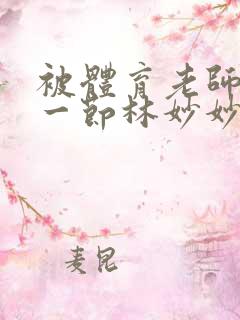 被體育老師
一節林妙妙
麦昆